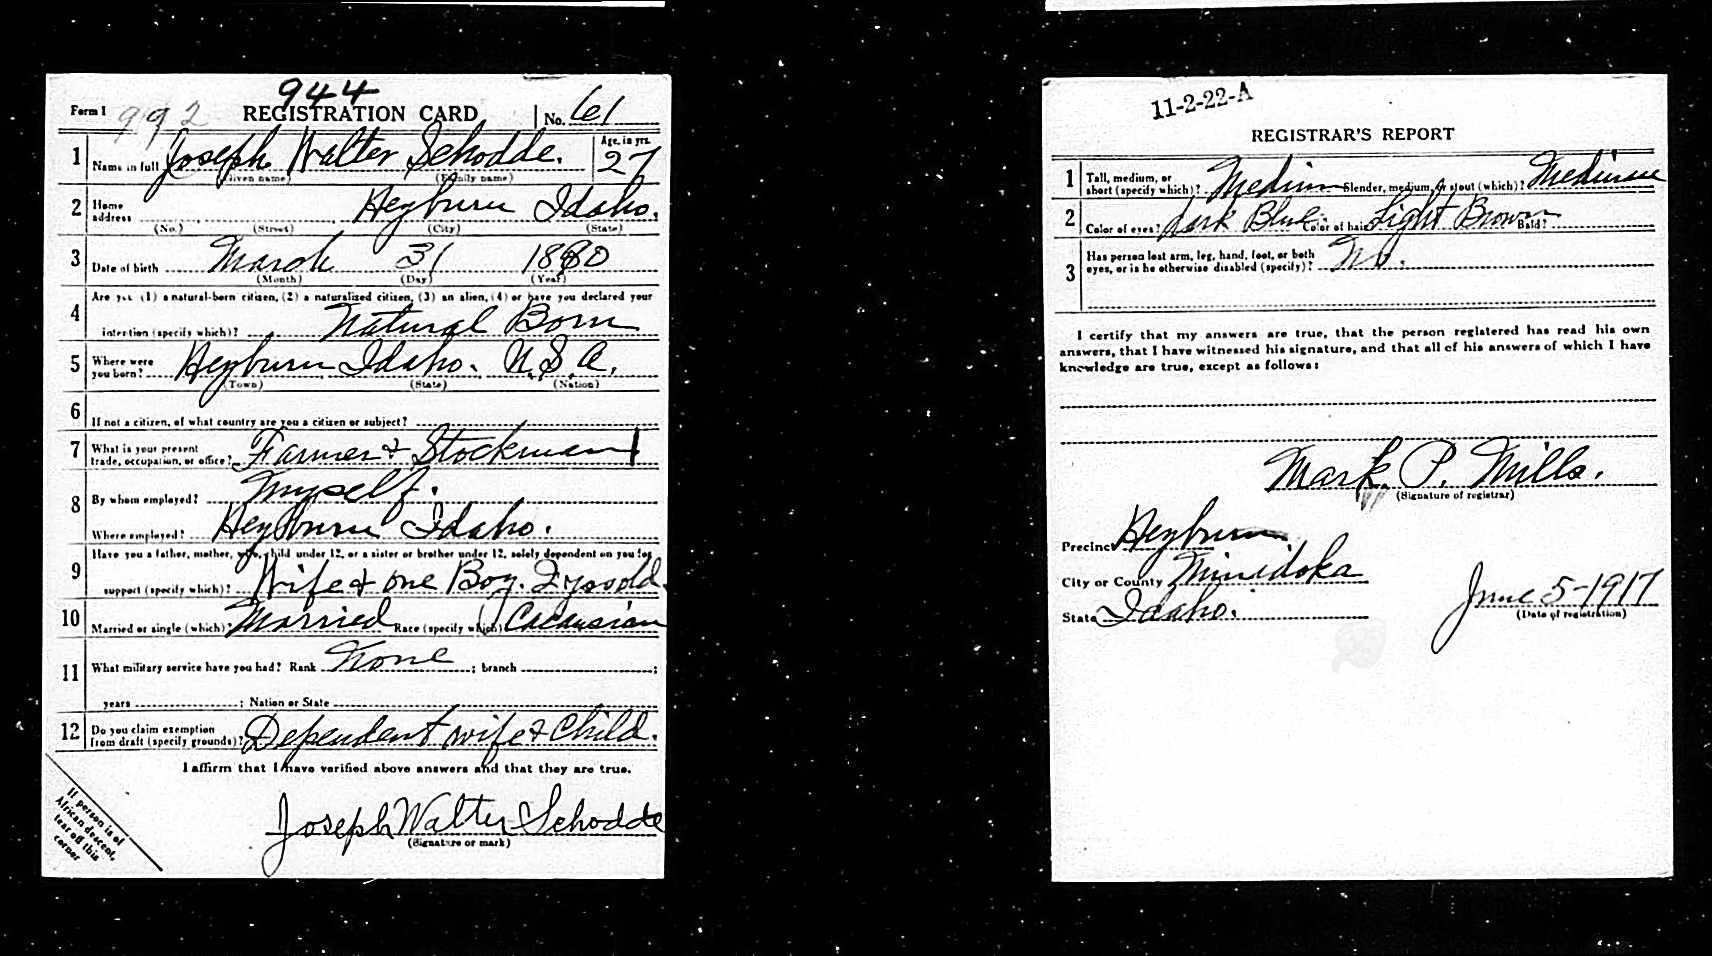 944
Form 1 992 REGISTRATION CARD No. 61
1 Name in full Joseph Walter Schodde. Age, in yrs. 27
(Given name) (Family name)
2 Home address Heyburn Idaho.
(No.) (Street) (City) (State)
3 Date of birth March 31 1890
(Month) (Day) (Year)
4 Are you (1) a natural-born citizen, (2) a naturalized citizen, (3) an alien, (4) or have you declared your
intention (specify which)? Natural Born
5 Where were you born? Heyburn Idaho. U.S.A.
(Town) (State) (Nation)
6 If not a citizen, of what country are you a citizen or subject?
7 What is your present trade, occupation, or office? Farmer & Stockman 1
8 By whom employed? Myself.
Where employed? Heyburn Idaho.
9 Have you a father, mother, wife, child under 12, or a sister or brother under 12, solely dependent on you for
support (specify which)? Wife & one Boy. 2 yrs old.
10 Married or single (which)? Married Race (specify which)? Caucasian
11 What military service have you had? Rank None ; branch ;
years ; Nation or State
12 Do you claim exemption from draft (specify grounds)? Dependent wife & Child.
I affirm that I have verified above answers and that they are true.
Joseph Walter Schodde
(Signature or mark)
If person is of
African descent,
tear off this
corner
11-2-22-A
REGISTRAR'S REPORT
1 Tall, medium, or short (specify which)? Medium Slender, medium, or stout (which)? Medium
2 Color of eyes? Dark Blue Color of hair? Light Brown Bald?
3 Has person lost arm, leg, hand, foot, or both eyes, or is he otherwise disabled (specify)? No.
I certify that my answers are true, that the person registered has read his own
answers, that I have witnessed his signature, and that all of his answers of which I have
knowledge are true, except as follows:
Mark P. Mills.
(Signature of registrar)
Precinct Heyburn
City or County Minidoka
State Idaho.
June 5-1917
(Date of registration)